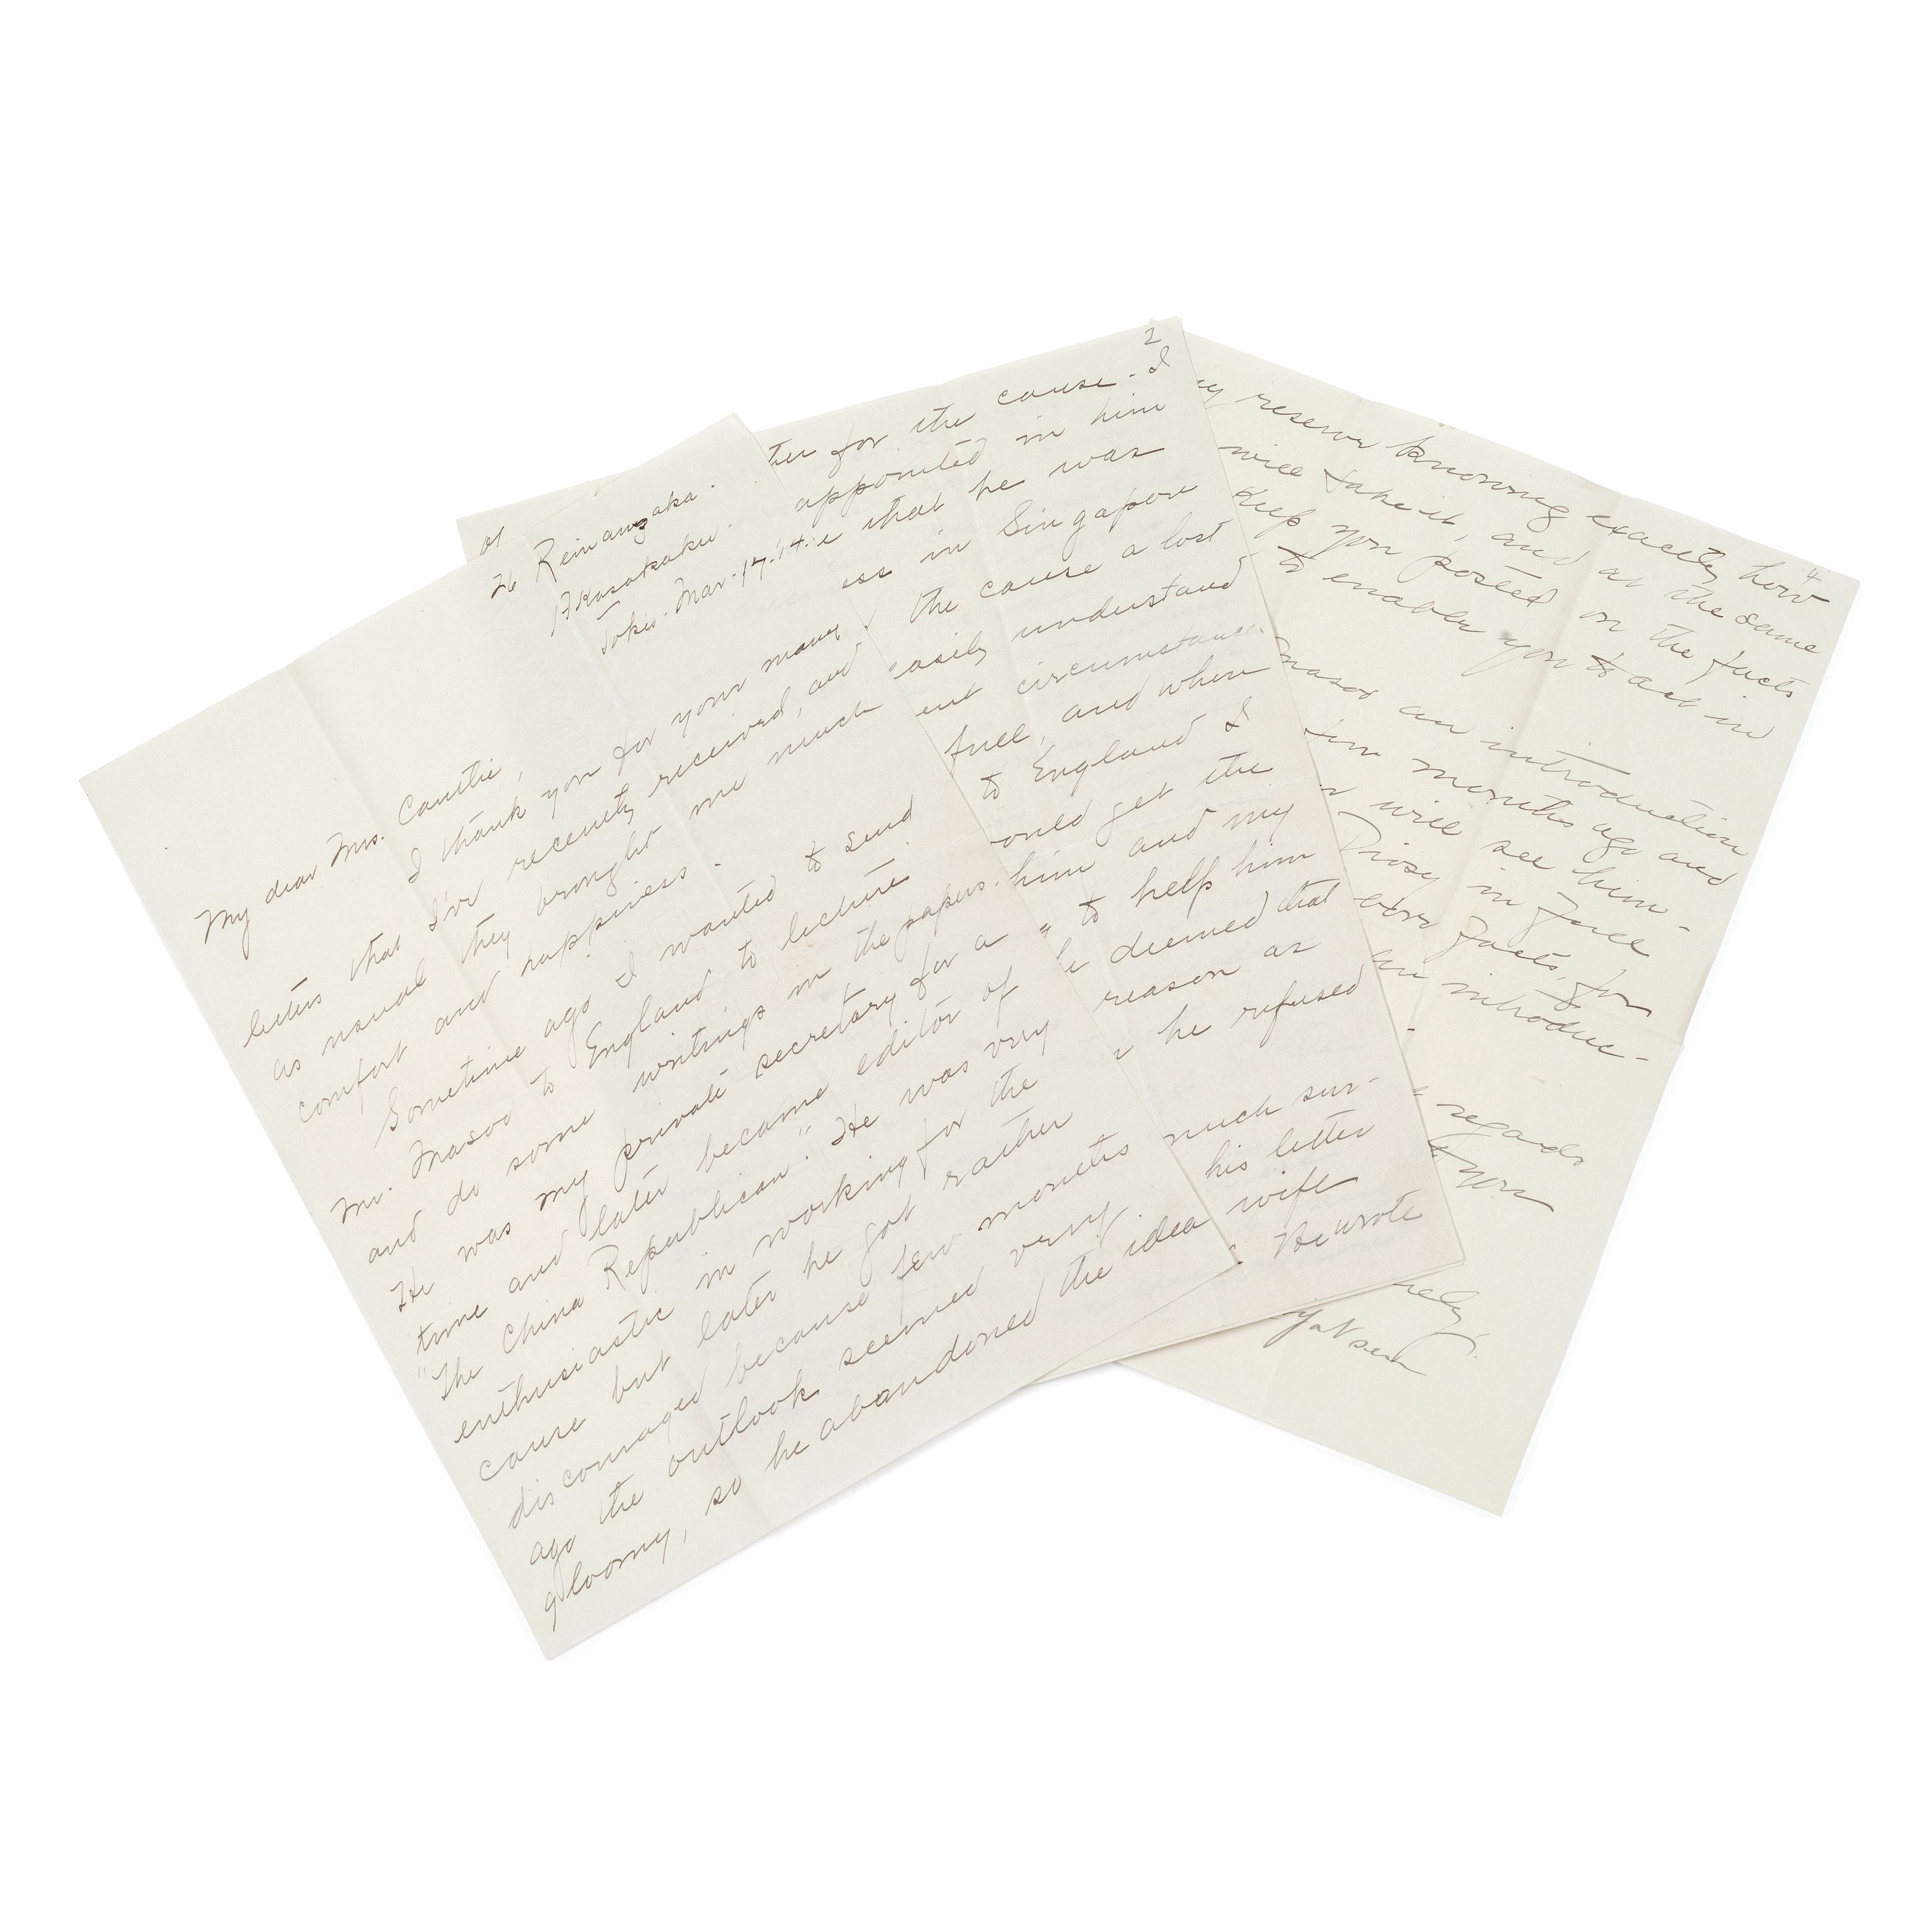 26 Reinanzaka.
Akasakaku.
Tokio. Mar. 17. '14.
My dear Mrs. Cantlie,
I thank you for your many
letters that I've recently received, and
as usual they brought me much
comfort and happiness.
Sometime ago I wanted to send
Mr. Masoo to England to lecture
and do some writings in the papers.
He was my private secretary for a
time and later became editor of
"The China Republican". He was very
enthusiastic in working for the
cause but later he got rather
discouraged because few months
ago the outlook seemed very
gloomy, so he abandoned the idea
2
of
for the cause. I
appointed in him
that he was
in Singapore
the cause a lost
easily understand
circumstances
full, and when
to England I
get the
him and my
to help him
deemed that
reason as
he refused
much sur-
his letter
wife
He wrote
4
reserve knowing exactly how
will take it, and at the same
keep you posted on the facts
to enable you to act in
Masoo an introduction
few months ago and
will see him.
Diosy in full
facts, for
an introduc-
regards
yours